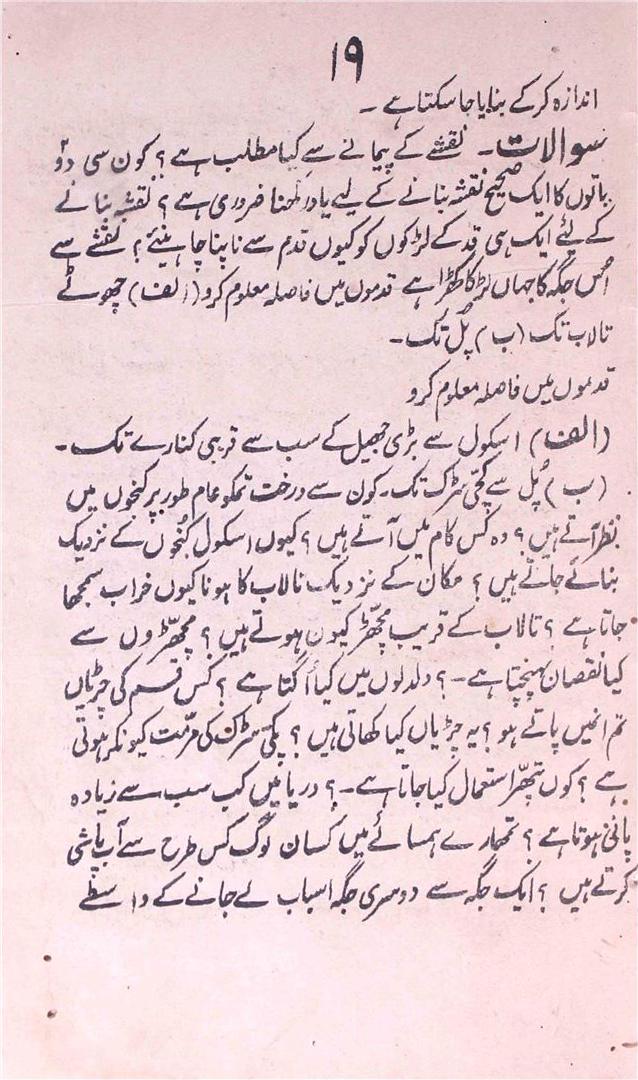 ۱۹
اندازہ کرکے بنایا جاسکتا ہے ۔
سوالات ۔ نقشے کے پیمانے سے کیا مطلب ہے ؟ کون سی دوٗ
باتوں کا ایک صحیح نقشہ بنانے کے لیے یاد رکھنا ضروری ہے ؟ نقشہ بنانے
کے لئے ایک ہی قد کے لڑکوں کو کیوں قدم سے ناپنا چاہیئے ؟ نقشے سے
اُس جگہ کا جہاں لڑکا کھڑا ہے قدموں میں فاصلہ معلوم کرو (الف) چھوٹے
تالاب تک (ب) پُل تک ۔
قدموں میں فاصلہ معلوم کرو
(الف) اسکول سے بڑی جھیل کے سب سے قریبی کنارے تک ۔
(ب) پُل سے کچّی سڑک تک ۔ کون سے درخت تمکو عام طور پر کنجوں میں
نظر آتے ہیں ؟ وہ کس کام میں آتے ہیں ؟ کیوں اسکول کُنجوں کے نزدیک
بنائے جاتے ہیں ؟ مکان کے نزدیک تالاب کا ہونا کیوں خراب سمجھا
جاتا ہے ؟ تالاب کے قریب مچھّڑ کیوں ہوتے ہیں ؟ مچھّڑوں سے
کیا نقصان پہنچتا ہے ۔ ؟ دلدلوں میں کیا اُگتا ہے ؟ کس قسم کی چڑیاں
تم انھیں پاتے ہو ؟ یہ چڑیاں کیا کھاتی ہیں ؟ پکی سڑک کی مرّمت کیونکر ہوتی
ہے ؟ کون پتھّر استعمال کیا جاتا ہے ۔ ؟ دریا میں کب سب سے زیادہ
پانی ہوتا ہے ؟ تمھارے ہمسائے میں کسان لوگ کس طرح سے آب پاشی
کرتے ہیں ؟ ایک جگہ سے دوسری جگہ اسباب لے جانے کے واسطے